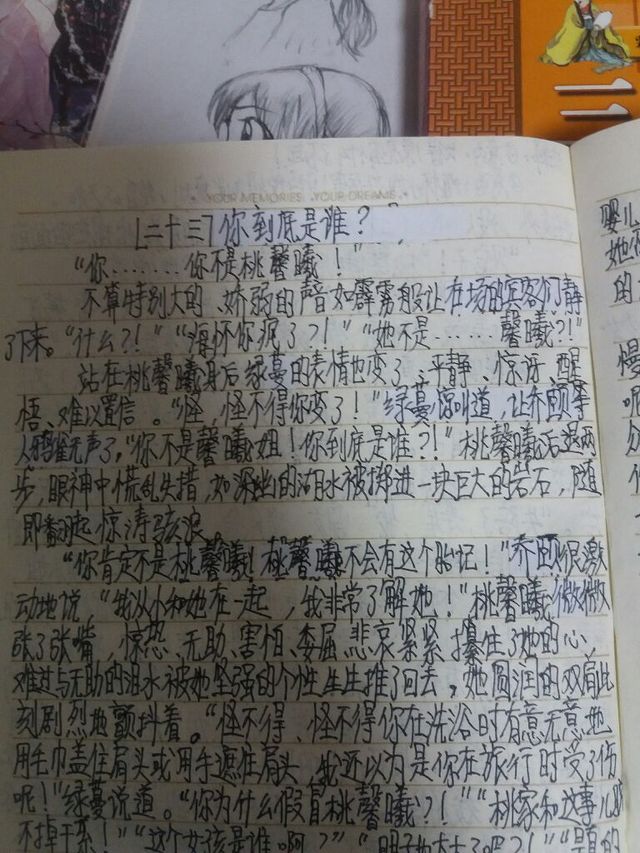 二
YOUR MEMORIES YOUR DREAMS
[二十三]你到底是谁？
“你………你不是桃馨曦！”
不算特别大的、娇弱的声如霹雾般让在场的宾客们静
了下来。“什么？！”“海怀你疯了？！”“她不是……馨曦？！”
站在桃馨曦身后绿蔓的表情也变了，平静、惊讶、醒
悟、难以置信。“怪，怪不得你变了！”绿蔓惊叫道，让乔颐等
人鸦雀无声了。“你不是馨曦姐！你到底是谁？！”桃馨曦后退两
步，眼神中慌乱失措，如深幽的湖水被掷进一块巨大的岩石，随
即翻起惊涛骇浪。
“你肯定不是桃馨曦！桃馨曦不会有这个胎记！”乔颐很激
动地说，“我从小和她在一起，我非常了解她！”桃馨曦微微
张了张嘴，惊恐、无助、害怕、委屈、悲哀紧紧攥住了她的心，
难过与无助的泪水被她坚强的个性生生推了回去，她圆润的双肩此
刻剧烈地颤抖着。“怪不得、怪不得你在洗浴时有意无意地
用毛巾盖住肩头或用手遮住肩头，我还以为是你在旅行时受了伤
呢！”绿蔓说道。“你为什么假冒桃馨曦？！”“桃家和这事儿脱
不掉干系！”“这个女孩是谁啊？”“胆子也太大了吧？”“
婴儿
她
的
慢
呢
众
你